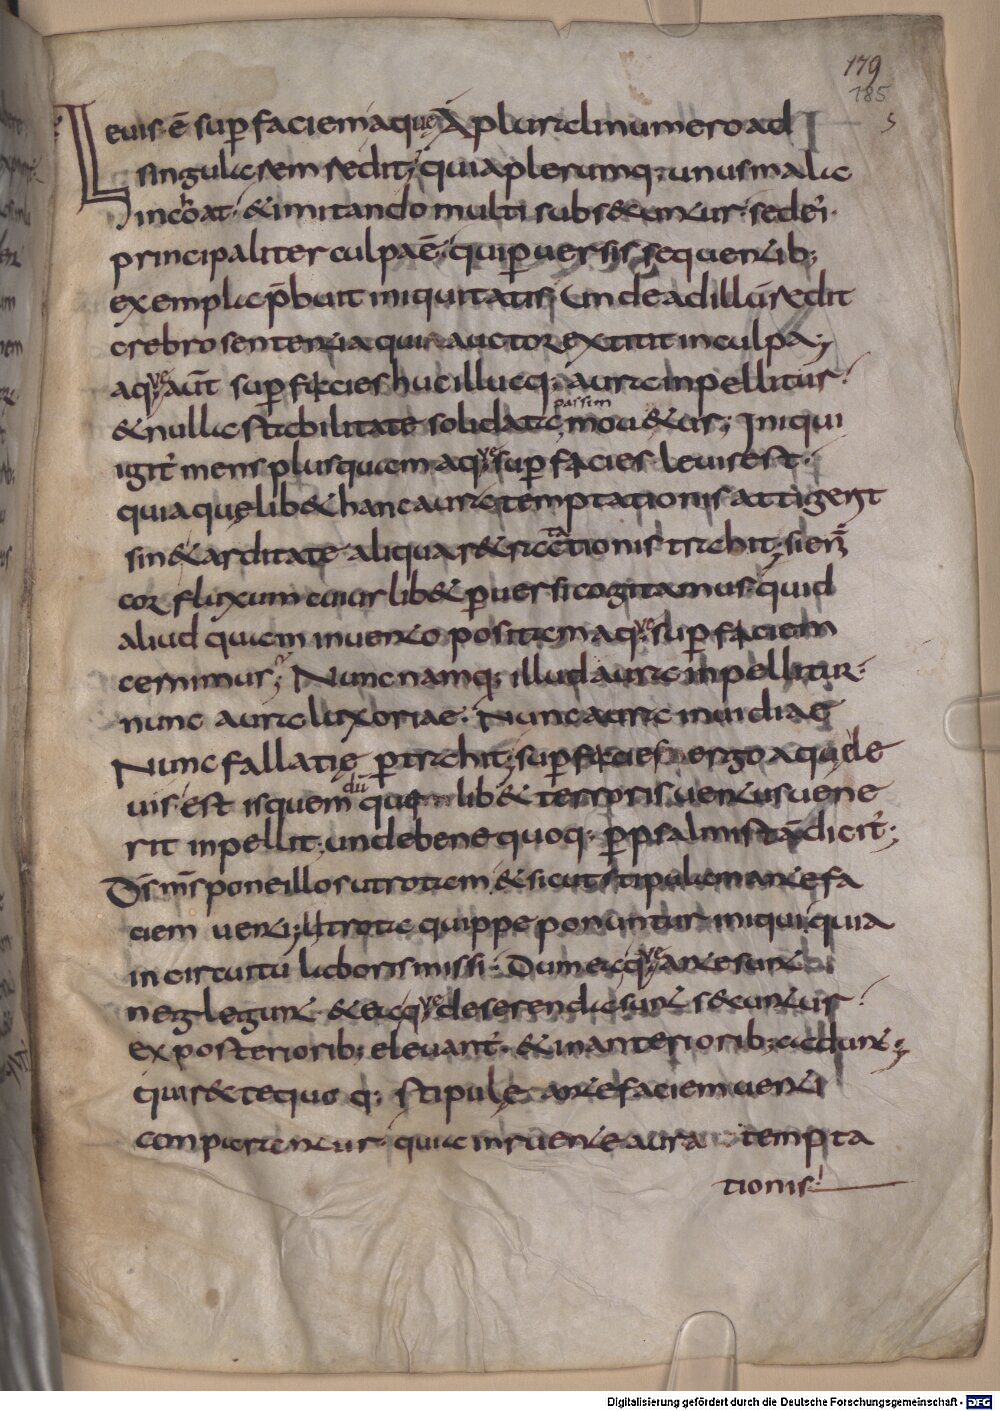 179
185
Leuis ē sup faciem aque A plurali numero ad
singularem redit; quia plerumq; unus mala
incoat. & imitando multi subsecuntur. sed eī.
principaliter culpa ē. qui puersis sequentib;
exempla p̄buit iniquitatis; Unde ad illū redit
crebro sententia qui auctor extitit in culpa;
aqve aūt supficies huc illucq; aura inpellitur.
passim
& nulla stabilitate solidata mou&ur; Iniqui
igit mens plusquam aqve supfacies leuis est.
quia quęlib& hanc aura temptationis attigerit
sin& arditate aliqua r&ractationis trahit; si enī
cor fluxum cuiuslib& puersi cogitamus. quid
aliud quam in uento positam aqve supfaciem
cernimus; Nunc namq; illud aura irę inpellitur.
nunc aura luxoriae. Nunc aura inuidiae
Nunc fallatię ptrahit; supficies ergo aquę le
dū
uis est is quem quę lib& terroris uentus uene
rit inpellit; unde bene quoq; p psalmistā dicit;
D̄s m̄s pone illos ut rotam & sicut stipulam ante fa
ciem uenti; Ut rota quippe ponuntur iniqui quia
in circuitu laboris missi. Dum ea qve ante sunt
neglegunt & ea qve deserenda sunt s&cuntur.
ex posteriorib; eleuant. & in anteriorib; cadunt;
qui r&te quoq; stipulę ante faciem uenti
comparantur. quia inruente aura tempta
tionis.
Digitalisierung gefördert durch die Deutsche Forschungsgemeinschaft - DFG